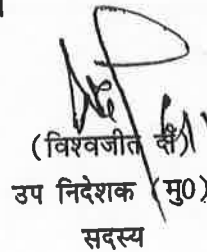 (विश्वजीत दे)
उप निदेशक (मु0)
सदस्य